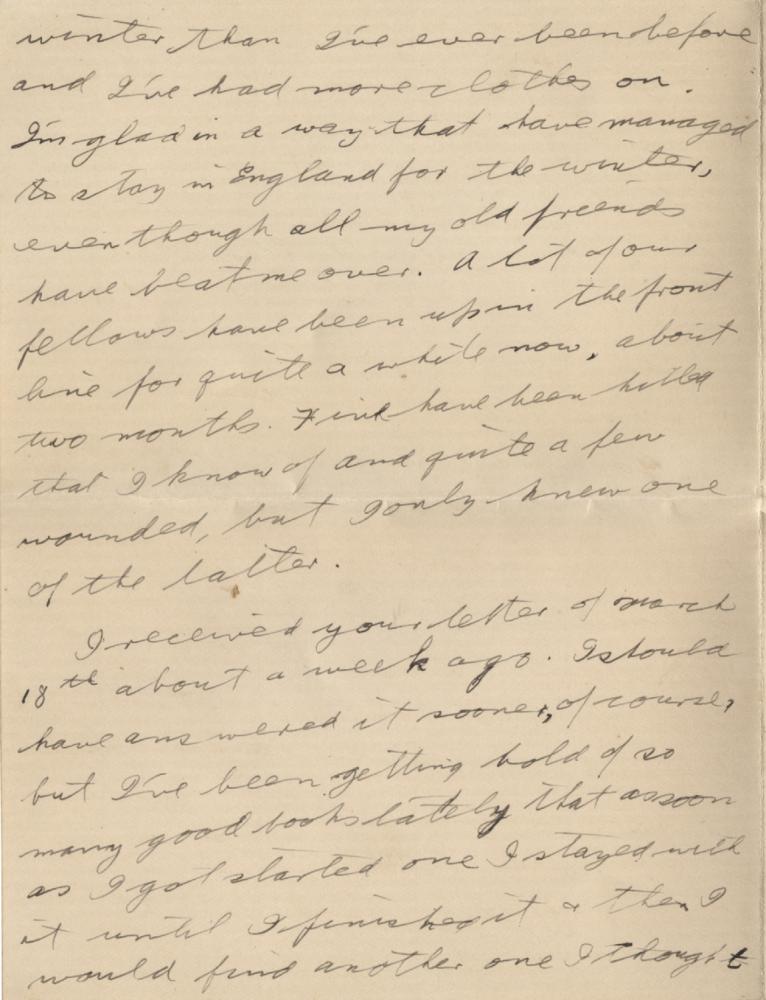 winter than I've ever been before
and I've had more clothes on.
I'm glad in a way that have managed
to stay in England for the winter,
even though all my old friends
have beat me over. A lot of our
fellows have been up in the front
line for quite a while now, about
two months. Five have been killed
that I know of and quite a few
wounded, but I only knew one
of the latter.
I received your letter of March
18th about a week ago. I should
have answered it sooner, of course,
but I've been getting hold of so
many good books lately that as soon
as I got started one I stayed with
it until I finished it & then I
would find another one I thought